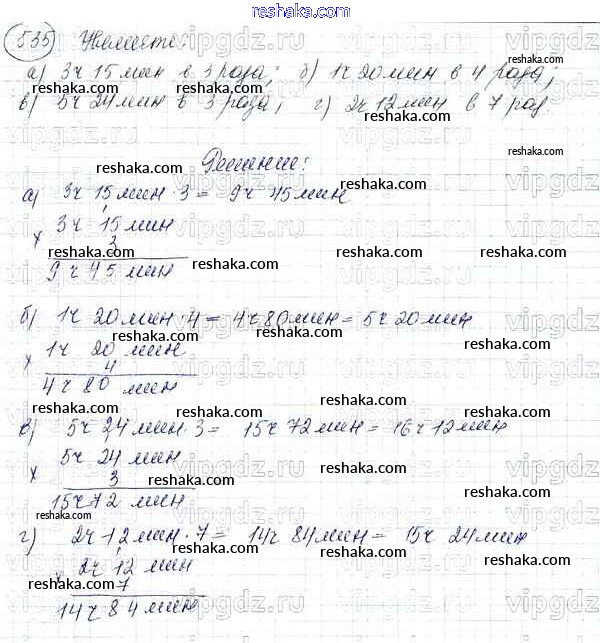 535 Увеличте:
а) 3ч 15мин в 3 раза; б) 1ч 20мин в 4 раза;
в) 5ч 24мин в 3 раза; г) 2ч 12мин в 7 раз.
Решение:
а) 3ч 15мин · 3 = 9ч 45мин
3ч 15мин
× 3
9ч 45мин
б) 1ч 20мин · 4 = 4ч 80мин = 5ч 20мин
1ч 20мин
× 4
4ч 80мин
в) 5ч 24мин · 3 = 15ч 72мин = 16ч 12мин
5ч 24мин
× 3
15ч 72мин
г) 2ч 12мин · 7 = 14ч 84мин = 15ч 24мин
2ч 12мин
× 7
14ч 84мин
reshaka.com
vipgdz.ru